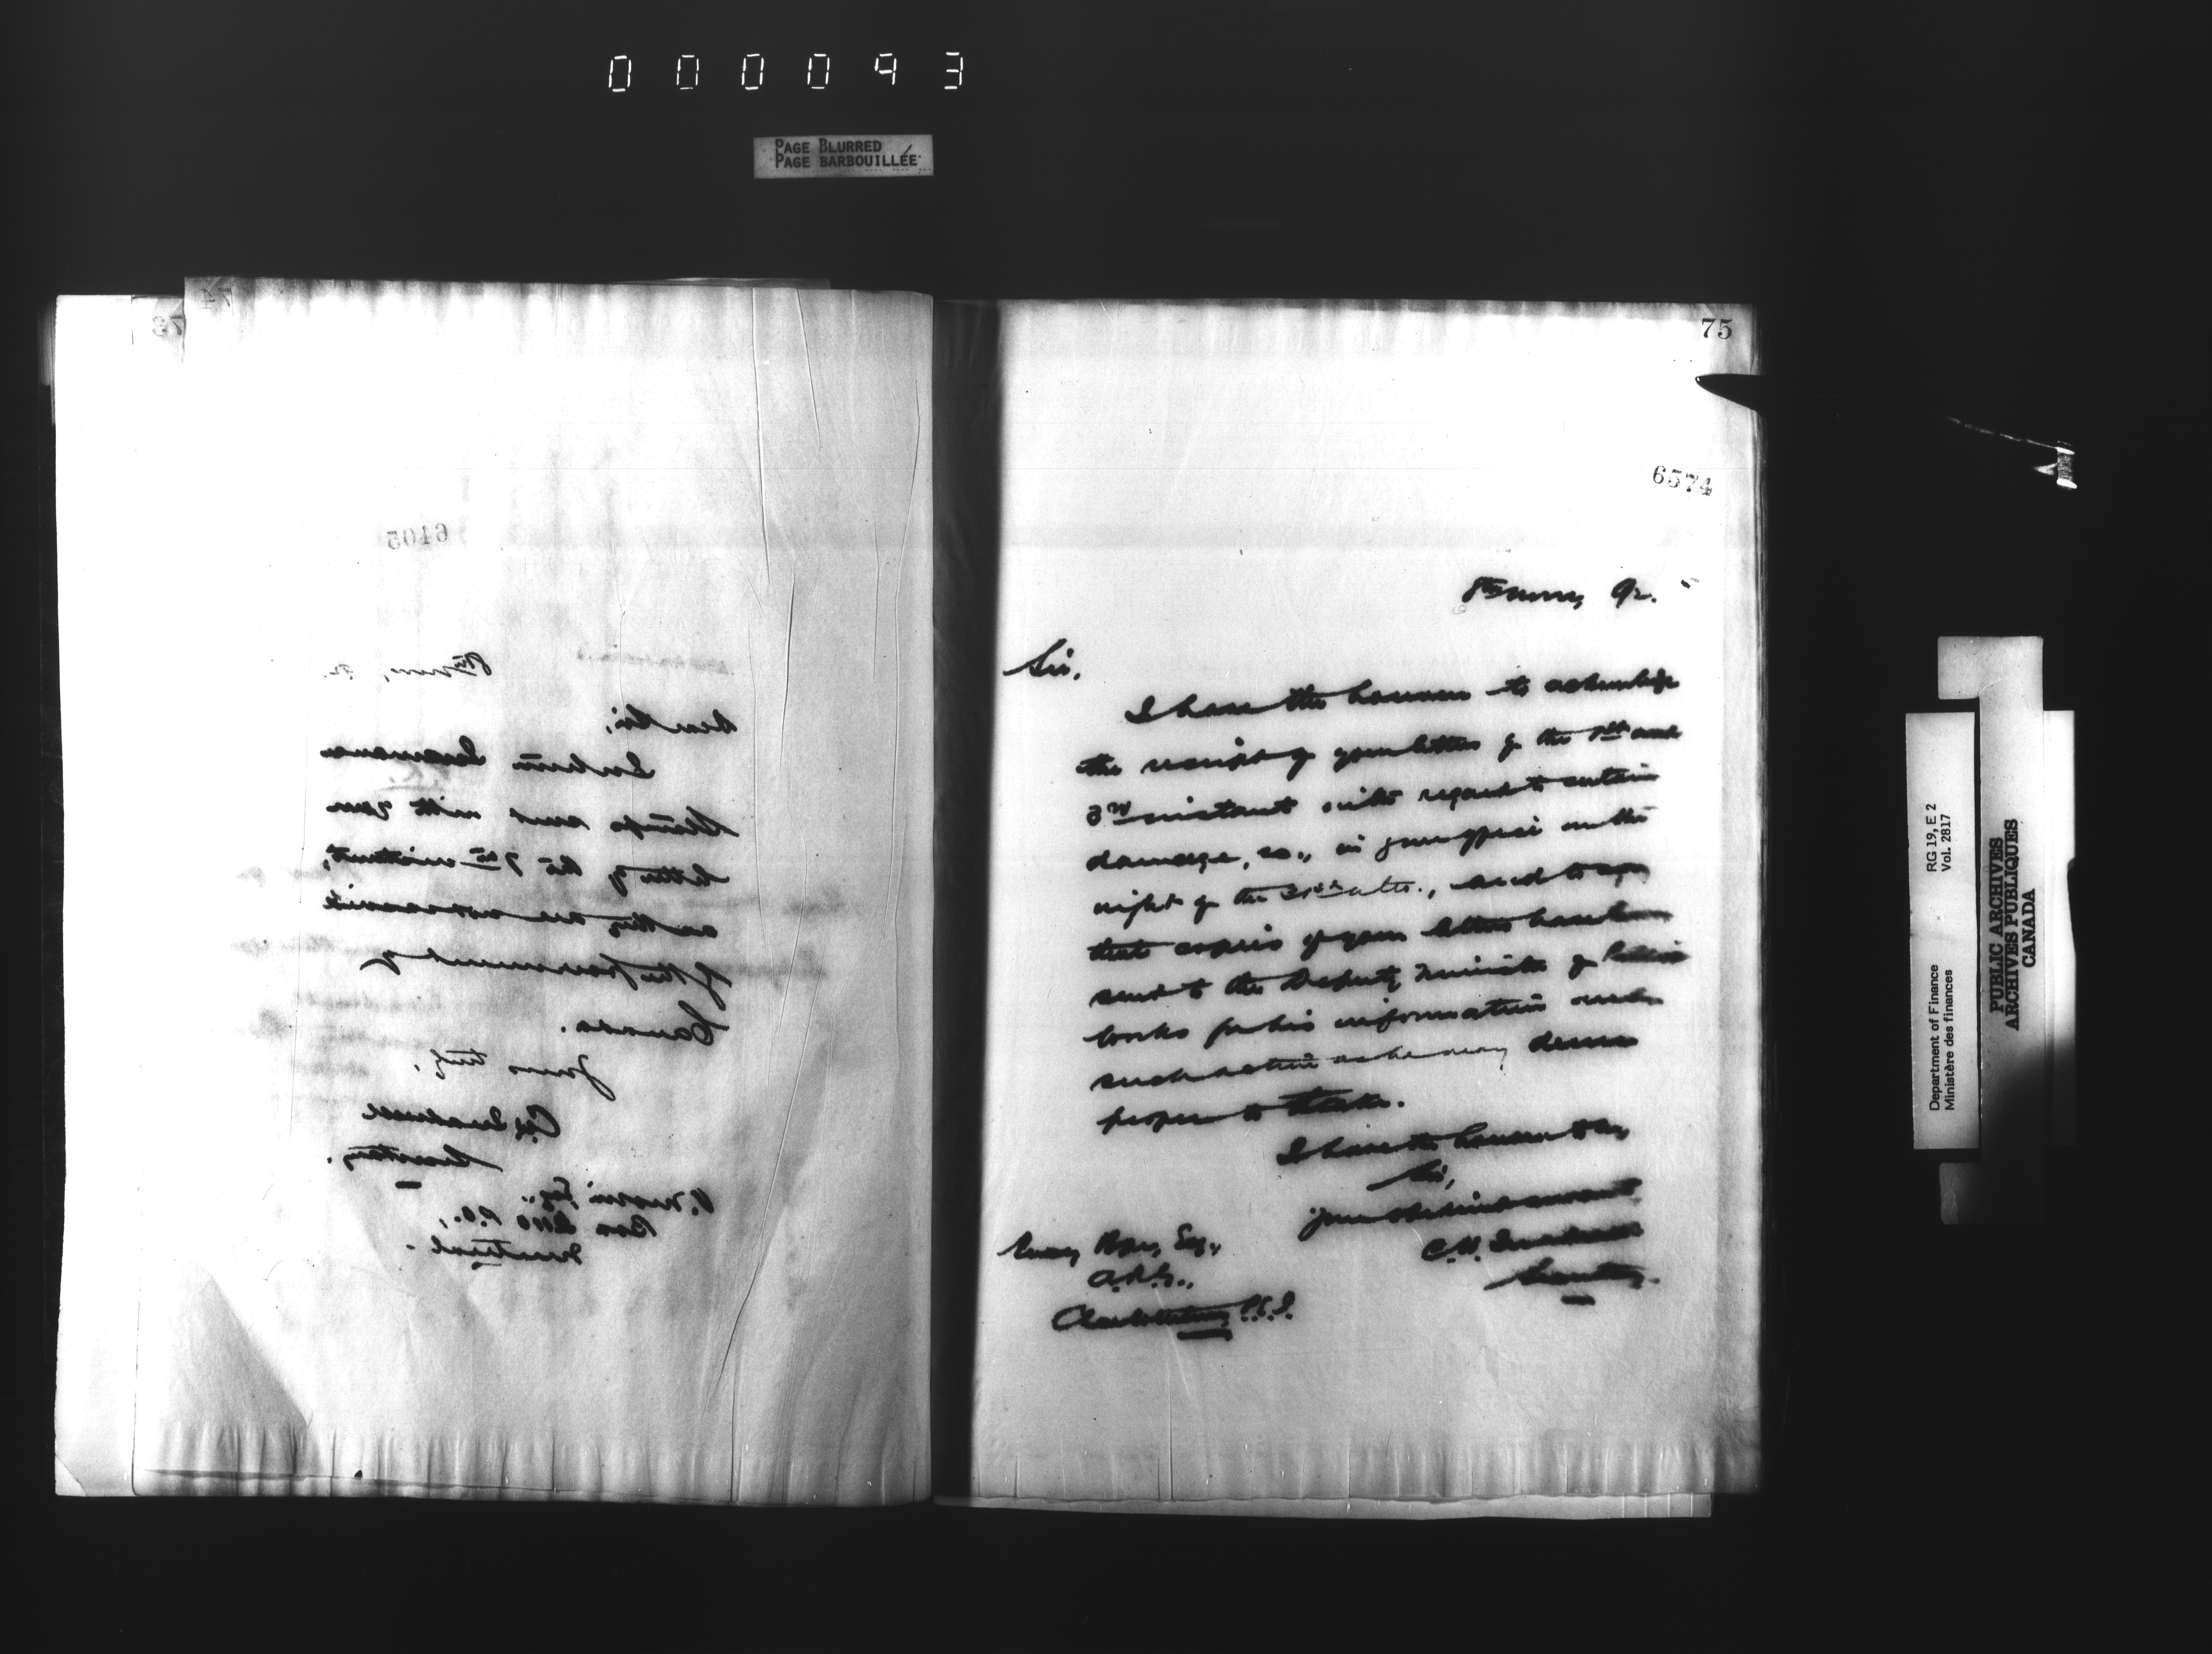 000093
PAGE BLURRED
PAGE BARBOUILLÉE
73
6105
8th Nov., 92.
Dear Sir,
I return Insurance
Stamps sent with your
letter of the 7th instant,
as they are not
of the Government of
Canada.
Yours truly,
Secretary.
Esq.,
Box P.O.,
Montreal.
75
6574
8th Novr, 92.
Sir,
I have the honour to acknowledge
the receipt of your letters of the 1st and
3rd instant with regard to certain
damage, &c., in your office on the
night of the 31st ulto., and to say
that copies of your letters have been
sent to the Deputy Minister of Public
Works for his information and
such action as he may deem
proper to take.
I have the honour to be,
Sir,
Your obedient servant
Secretary.
Percy Pope, Esq.,
A.R.G.,
Charlottetown, P.E.I.
Department of Finance
Ministère des finances
RG 19, E 2
Vol. 2817
PUBLIC ARCHIVES
ARCHIVES PUBLIQUES
CANADA